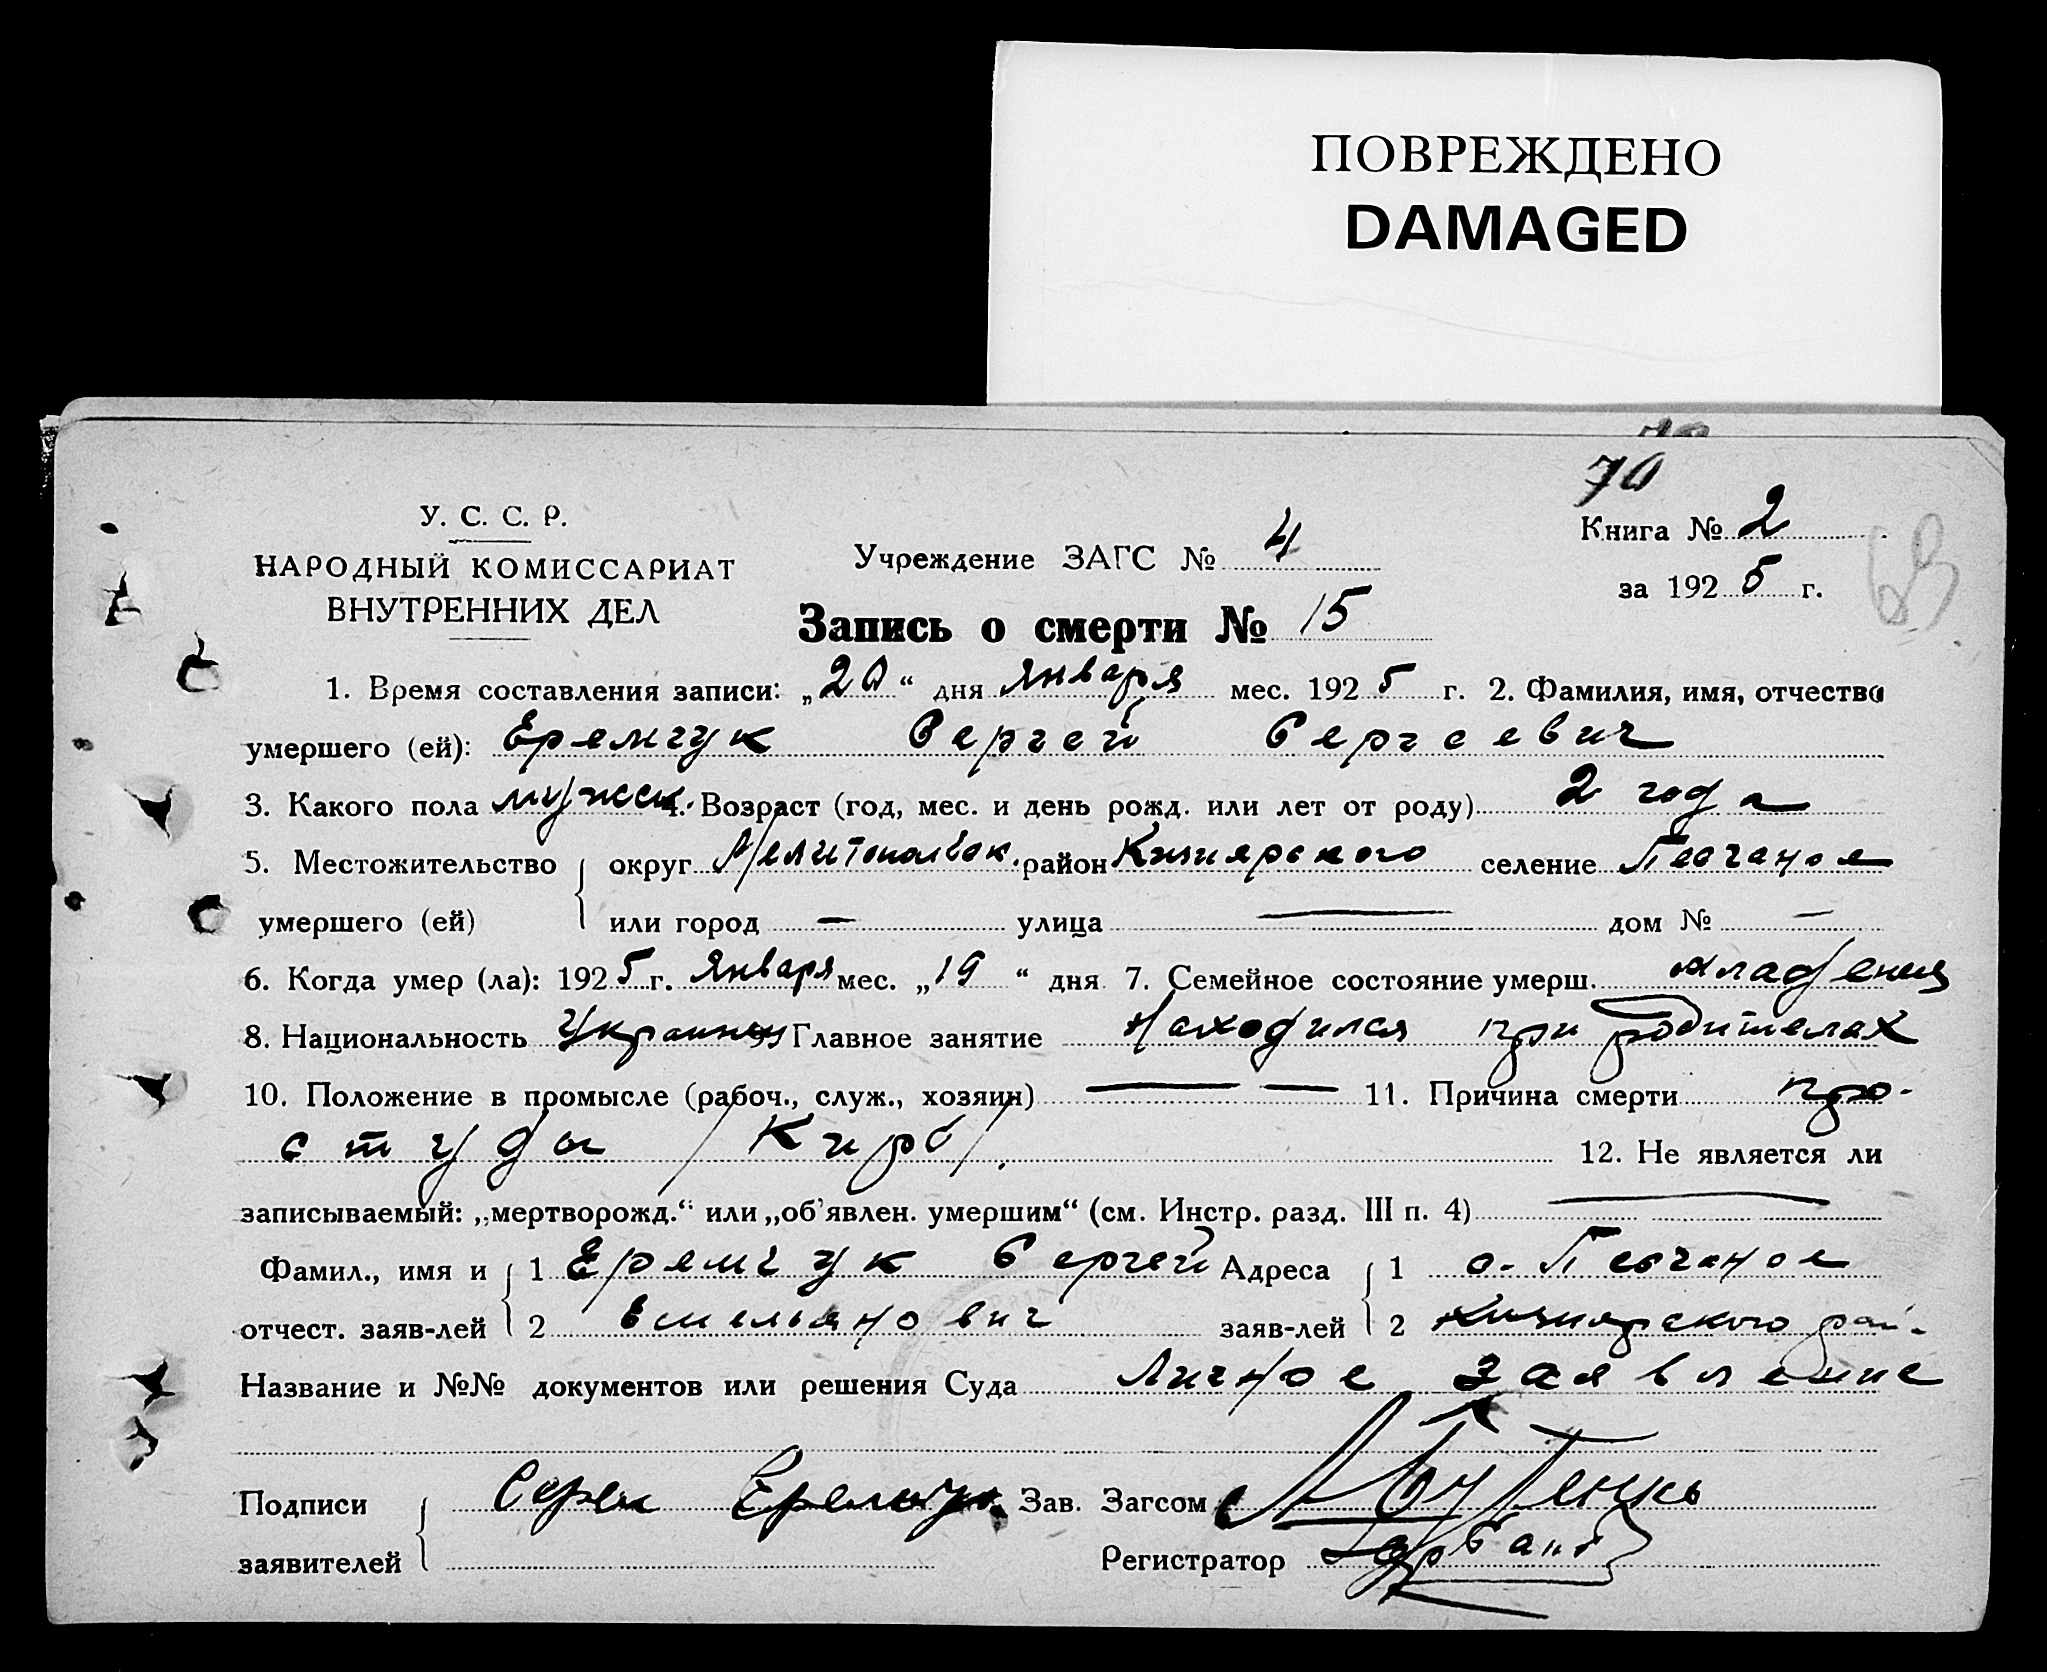 ПОВРЕЖДЕНО
DAMAGED
70
У. С. С. Р.
НАРОДНЫЙ КОМИССАРИАТ
ВНУТРЕННИХ ДЕЛ
Учреждение ЗАГС № 4
Книга № 2
за 1925 г.
Запись о смерти № 15
1. Время составления записи: „20“ дня января мес. 1925 г. 2. Фамилия, имя, отчество
умершего (ей): Еремчук Сергей Сергеевич
3. Какого пола мужск. 4. Возраст (год, мес. и день рожд. или лет от роду) 2 года
5. Местожительство округ Мелитопольск. район Кизиярского селение Песчаное
умершего (ей) или город — улица — дом № —
6. Когда умер (ла): 1925 г. января мес. „19“ дня 7. Семейное состояние умерш. младенец
8. Национальность Украинец 9. Главное занятие находился при родителях
10. Положение в промысле (рабоч., служ., хозяин) — — 11. Причина смерти про-
студа /Кирб/. 12. Не является ли
записываемый: „мертворожд.“ или „об'явлен. умершим“ (см. Инстр. разд. III п. 4) —
Фамил., имя и 1 Еремчук Сергей Адреса 1 с. Песчаное
отчест. заяв-лей 2 Емельянович заяв-лей 2 Кизиярского рай.
Название и №№ документов или решения Суда Личное заявление
Подписи Еремчук Зав. Загсом
заявителей Регистратор